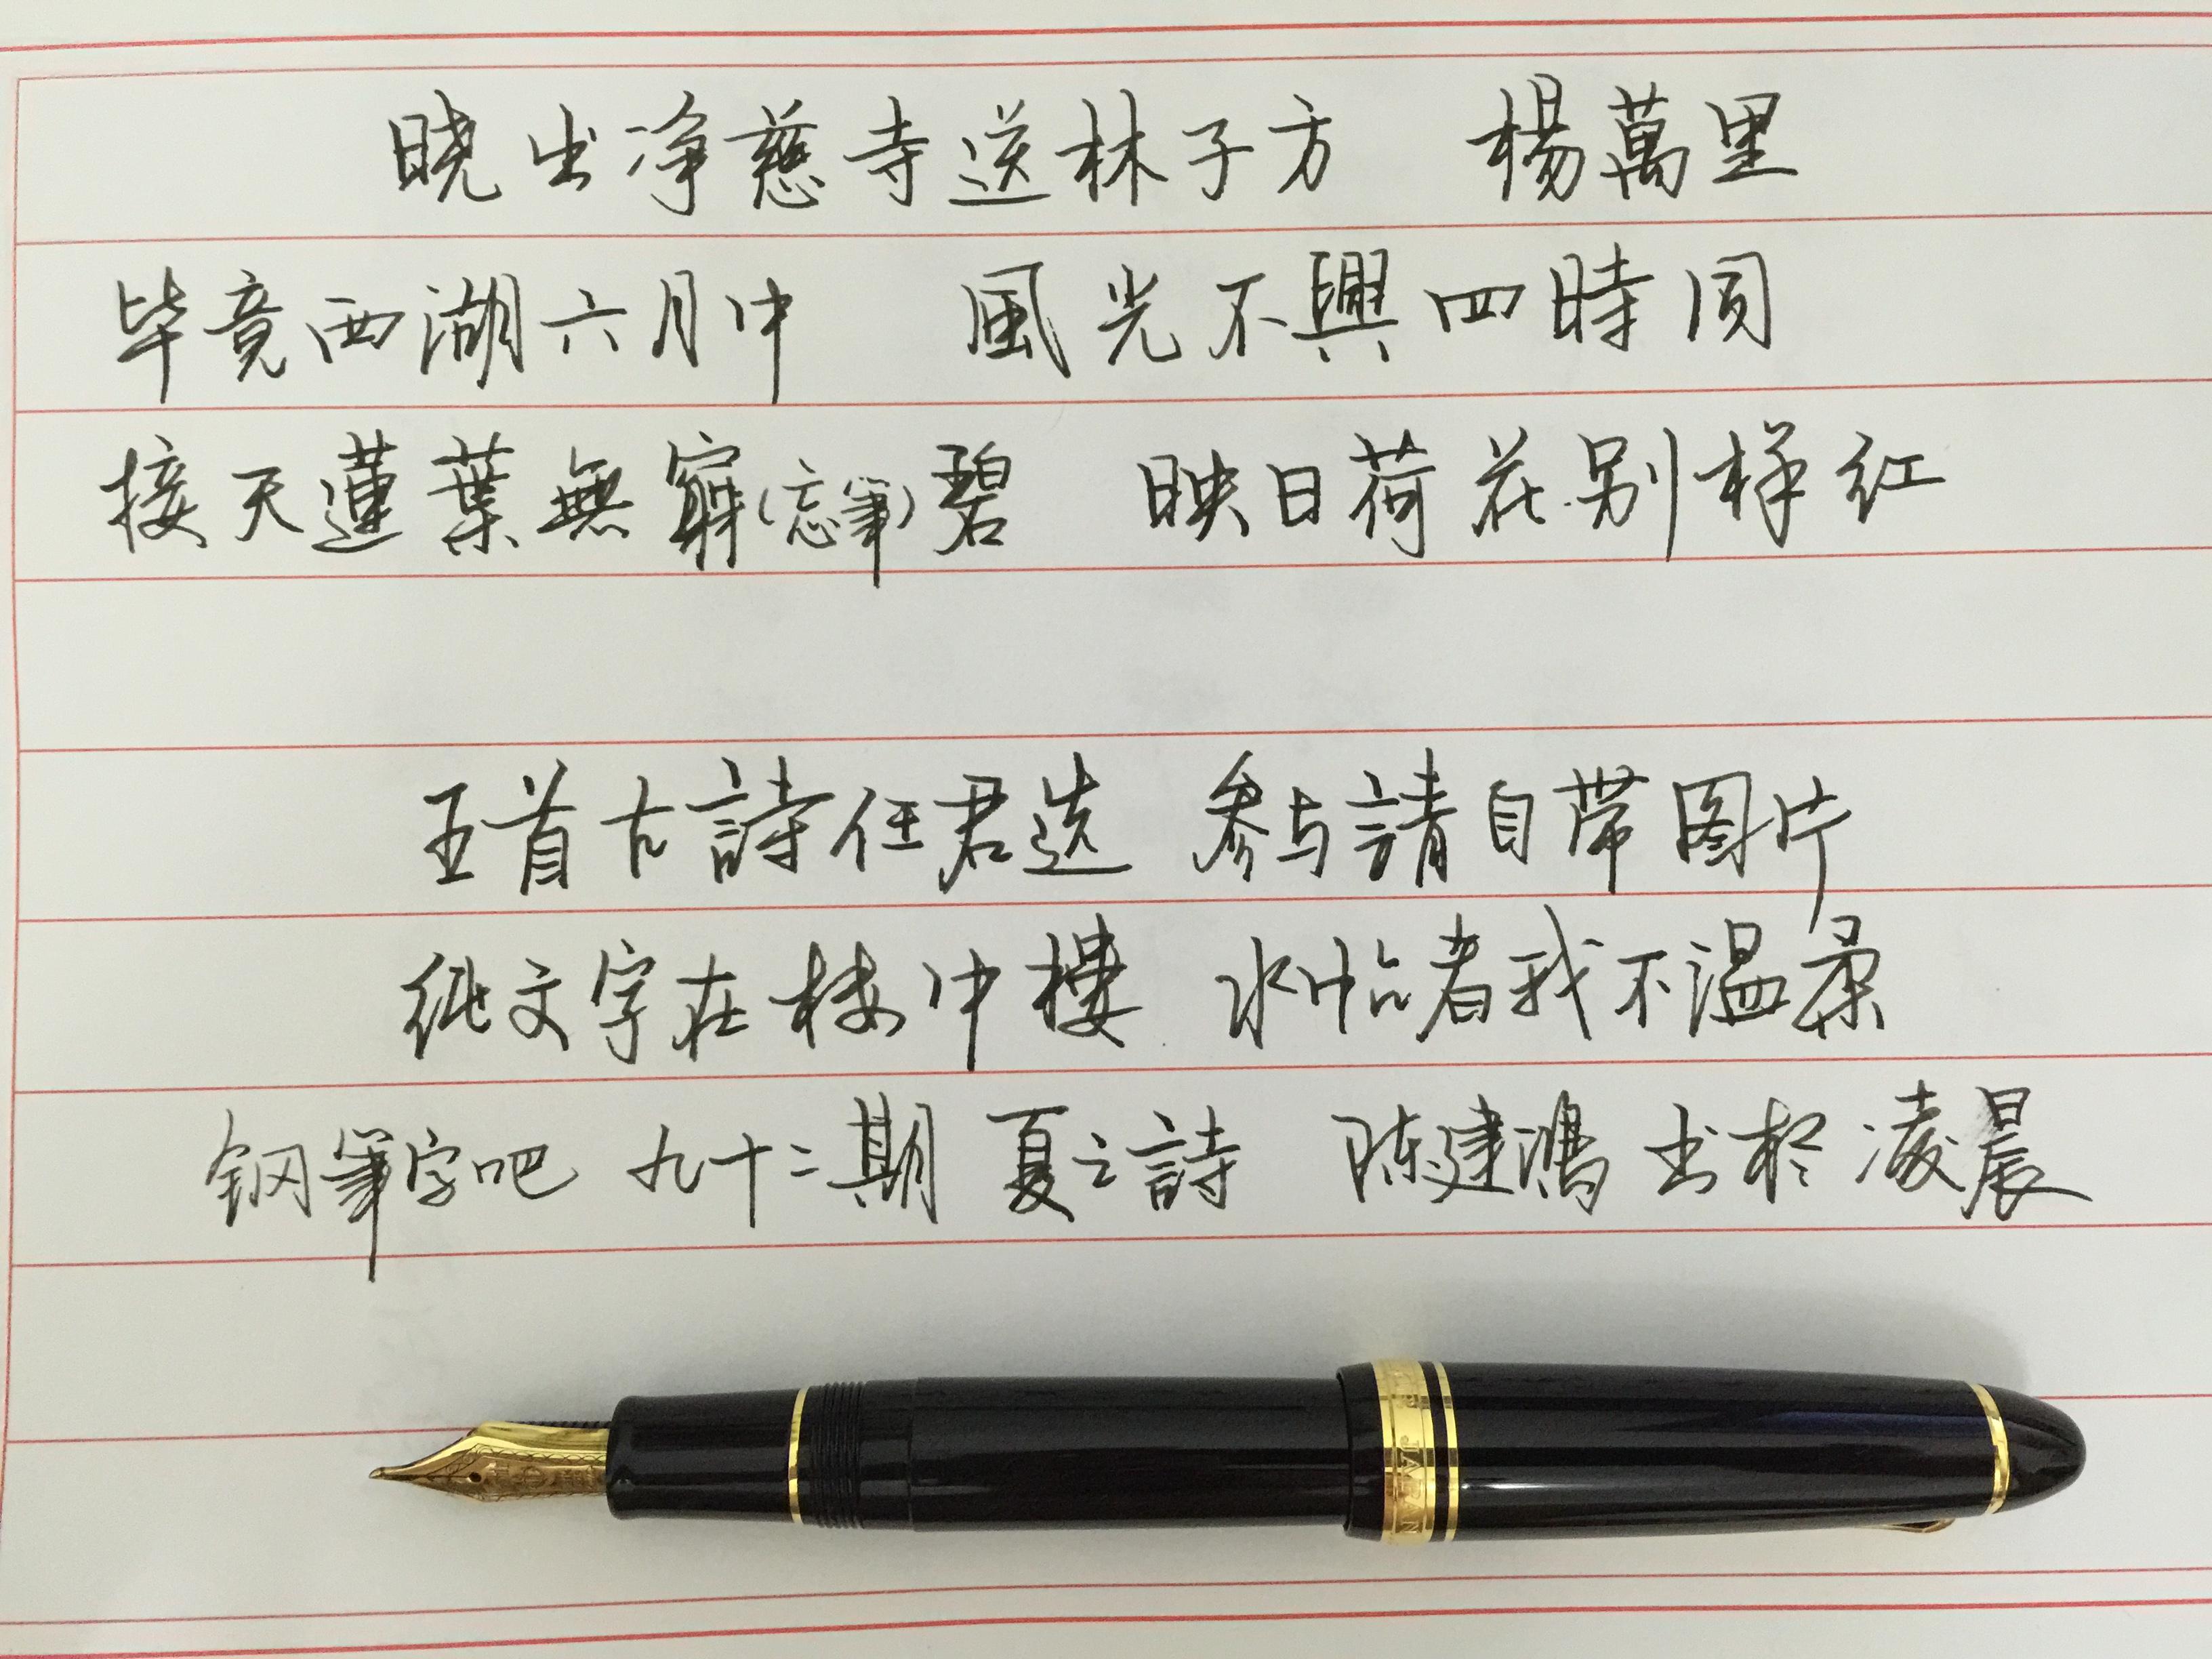 晓出净慈寺送林子方 楊萬里
毕竟西湖六月中 風光不興四時同
接天蓮葉無窮(忘筆)碧 映日荷花别样红
五首古詩任君选 参与請自带图片
纯文字在楼中樓 水怗者我不温柔
钢筆字吧 九十二期 夏之詩 陈建鴻 出於凌晨
JAPAN